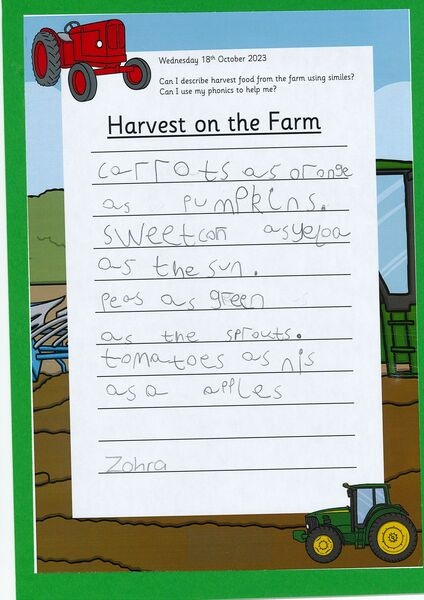 Wednesday 18th October 2023
Can I describe harvest food from the farm using similes?
Can I use my phonics to help me?
Harvest on the Farm
carrots as orange
as pumpkins.
sweetcorn as yeloa
as the sun.
peas as green
as the sprouts.
tomatoes as nis
as a apples
Zohra